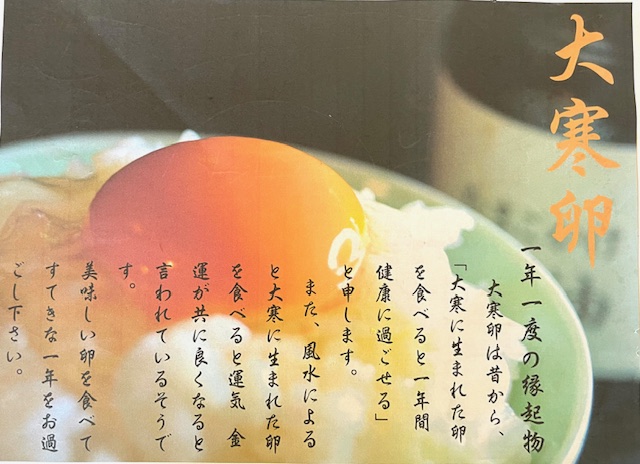 大寒卵
一年一度の縁起物
大寒卵は昔から、
「大寒に生まれた卵
を食べると一年間
健康に過ごせる」
と申します。
また、風水による
と大寒に生まれた卵
を食べると運気　金
運が共に良くなると
言われているそうで
す。
美味しい卵を食べて
すてきな一年をお過
ごし下さい。